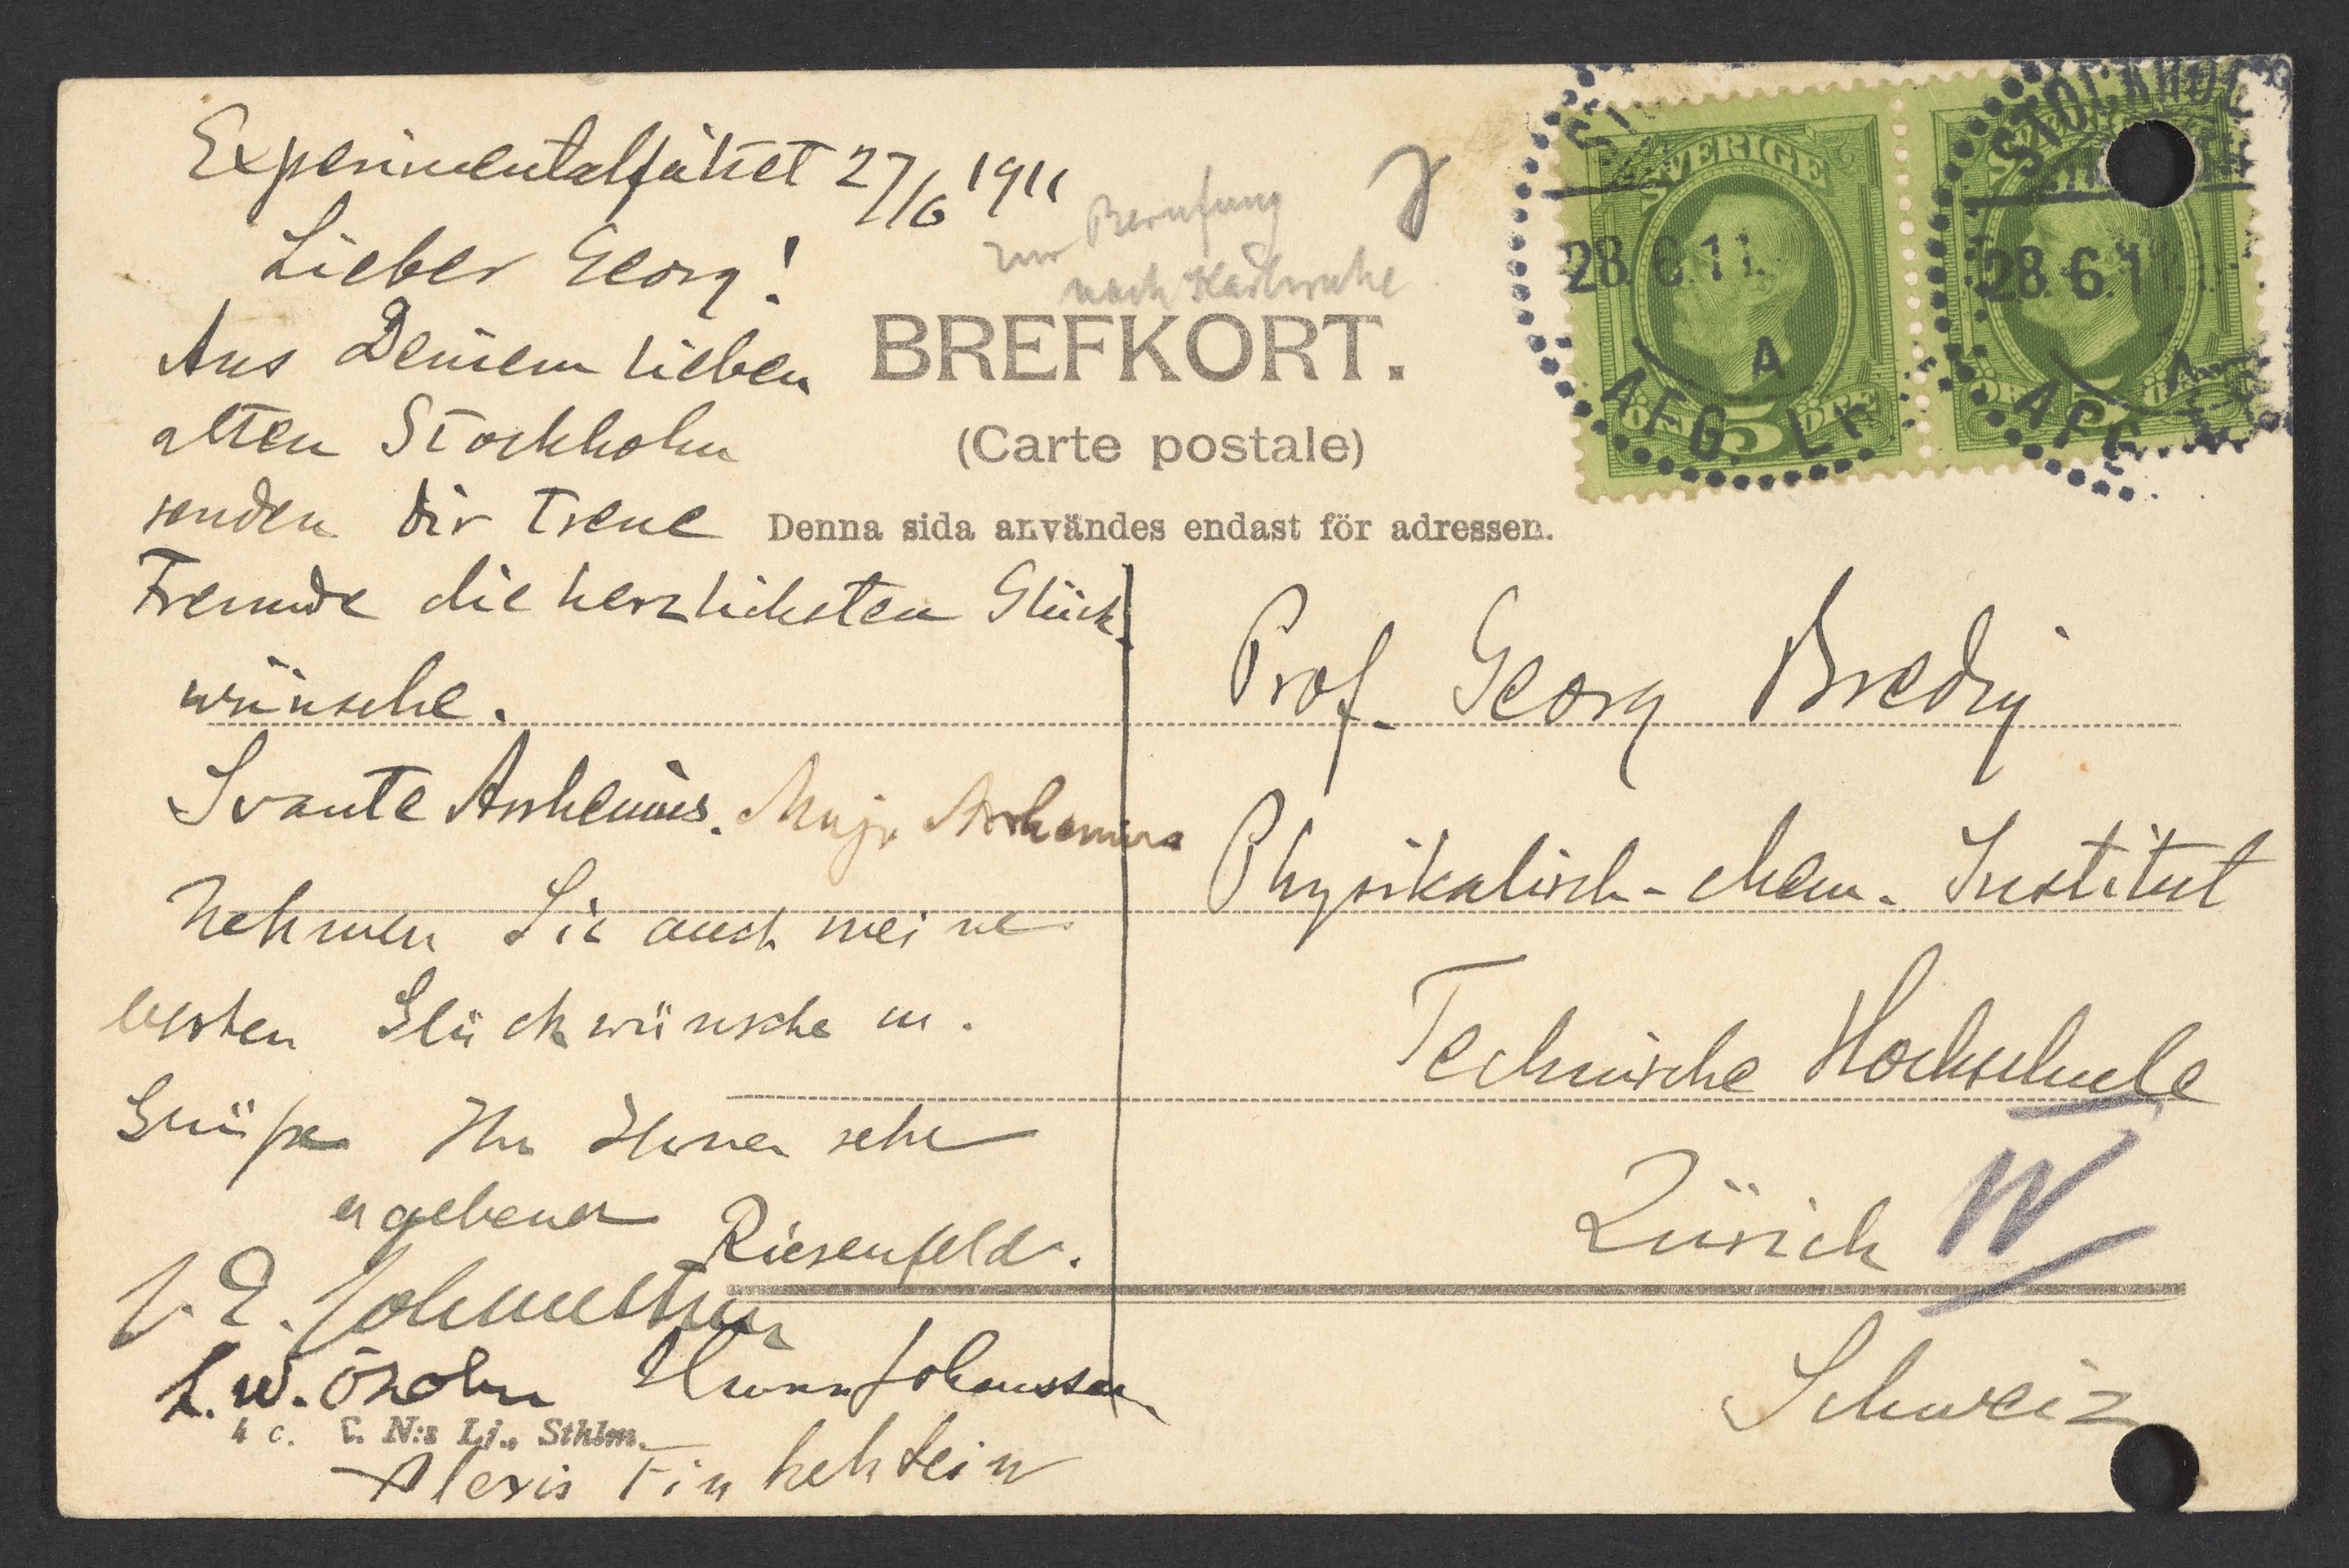 Experimentalfältet 27/6 1911
Lieber Georg!
Aus Deinem lieben
alten Stockholm
senden Dir treue
Freunde die herzlichsten Glück-
wünsche.
Svante Arrhenius. Maja Arrhenius
Nehmen Sie auch meine
besten Glückwünsche u.
Grüße Ihr Ihnen sehr
ergebener
Riesenfeld.
L. W. Öholm
Johansson
Alexis Finkelstein
4 c. N:s Lj., Sthlm.
zur Berufung
nach Karlsruhe
BREFKORT.
(Carte postale)
Denna sida användes endast för adressen.
Prof. Georg Bredig
Physikalisch-chem. Institut
Technische Hochschule
Zürich
Schweiz
SVERIGE
28.6.11
A
5
ÖRE
STOCKHOL
28.6.11